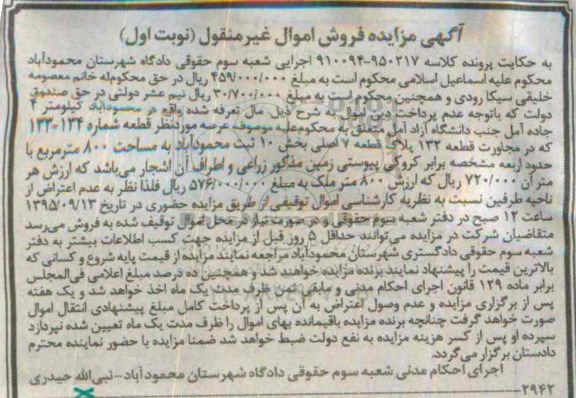 آگهی مزایده فروش اموال غیر منقول (نوبت اول)
به حکایت پرونده کلاسه ۹۵۰۲۱۷-۹۱۰۰۹۴ اجرایی شعبه سوم حقوقی دادگاه شهرستان محمودآباد
محکوم علیه اسماعیل اسلامی محکوم است به مبلغ ۴۵۹/۰۰۰/۰۰۰ ریال در حق محکوم‌له خانم معصومه
خلیقی سیکا رودی و همچنین محکوم است به مبلغ ۳۰/۷۰۰/۰۰۰ ریال نیم عشر دولتی در حق صندوق
دولت که باتوجه عدم پرداخت دین اموال به شرح ذیل مال تعرفه شده واقع در محمودآباد کیلومتر ۴
جاده آمل جنب دانشگاه آزاد آمل متعلق به محکوم‌علیه موصوف عرصه موردنظر قطعه شماره ۱۳۴-۱۳۳
که در مجاورت قطعه ۱۳۲ پلاک قطعه ۷ اصلی بخش ۱۰ ثبت محمودآباد به مساحت ۸۰۰ مترمربع با
حدود اربعه مشخصه برابر کروکی پیوستی زمین مذکور زراعی و اطراف آن اشجار می‌باشد که ارزش هر
متر آن ۷۲۰/۰۰۰ ریال که ارزش ۸۰۰ متر ملک به مبلغ ۵۷۶/۰۰۰/۰۰۰ ریال فلذا نظر به عدم اعتراض از
ناحیه طرفین نسبت به نظریه کارشناسی اموال توقیفی از طریق مزایده حضوری در تاریخ ۱۳۹۵/۰۹/۱۳
ساعت ۱۲ صبح در دفتر شعبه سوم حقوقی و در صورت نیاز در محل اموال توقیف شده به فروش می‌رسد
متقاضیان شرکت در مزایده می‌توانند حداقل ۵ روز قبل از مزایده جهت کسب اطلاعات بیشتر به دفتر
شعبه سوم حقوقی دادگستری شهرستان محمودآباد مراجعه نمایند مزایده از قیمت پایه شروع و کسانی که
بالاترین قیمت را پیشنهاد نمایند برنده مزایده خواهند شد و همچنین ده درصد مبلغ اعلامی فی‌المجلس
برابر ماده ۱۲۹ قانون اجرای احکام مدنی و مابقی ثمن ظرف مدت یک ماه اخذ خواهد شد و یک هفته
پس از برگزاری مزایده و عدم وصول اعتراض به آن پس از پرداخت کامل مبلغ پیشنهادی انتقال اموال
صورت خواهد گرفت چنانچه برنده مزایده باقیمانده بهای اموال را ظرف مدت یک ماه تعیین شده نپردازد
سپرده او پس از کسر هزینه مزایده به نفع دولت ضبط خواهد شد ضمنا مزایده با حضور نماینده محترم
دادستان برگزار می‌گردد.
اجرای احکام مدنی شعبه سوم حقوقی دادگاه شهرستان محمودآباد-نبی‌الله حیدری
۲۹۴۲